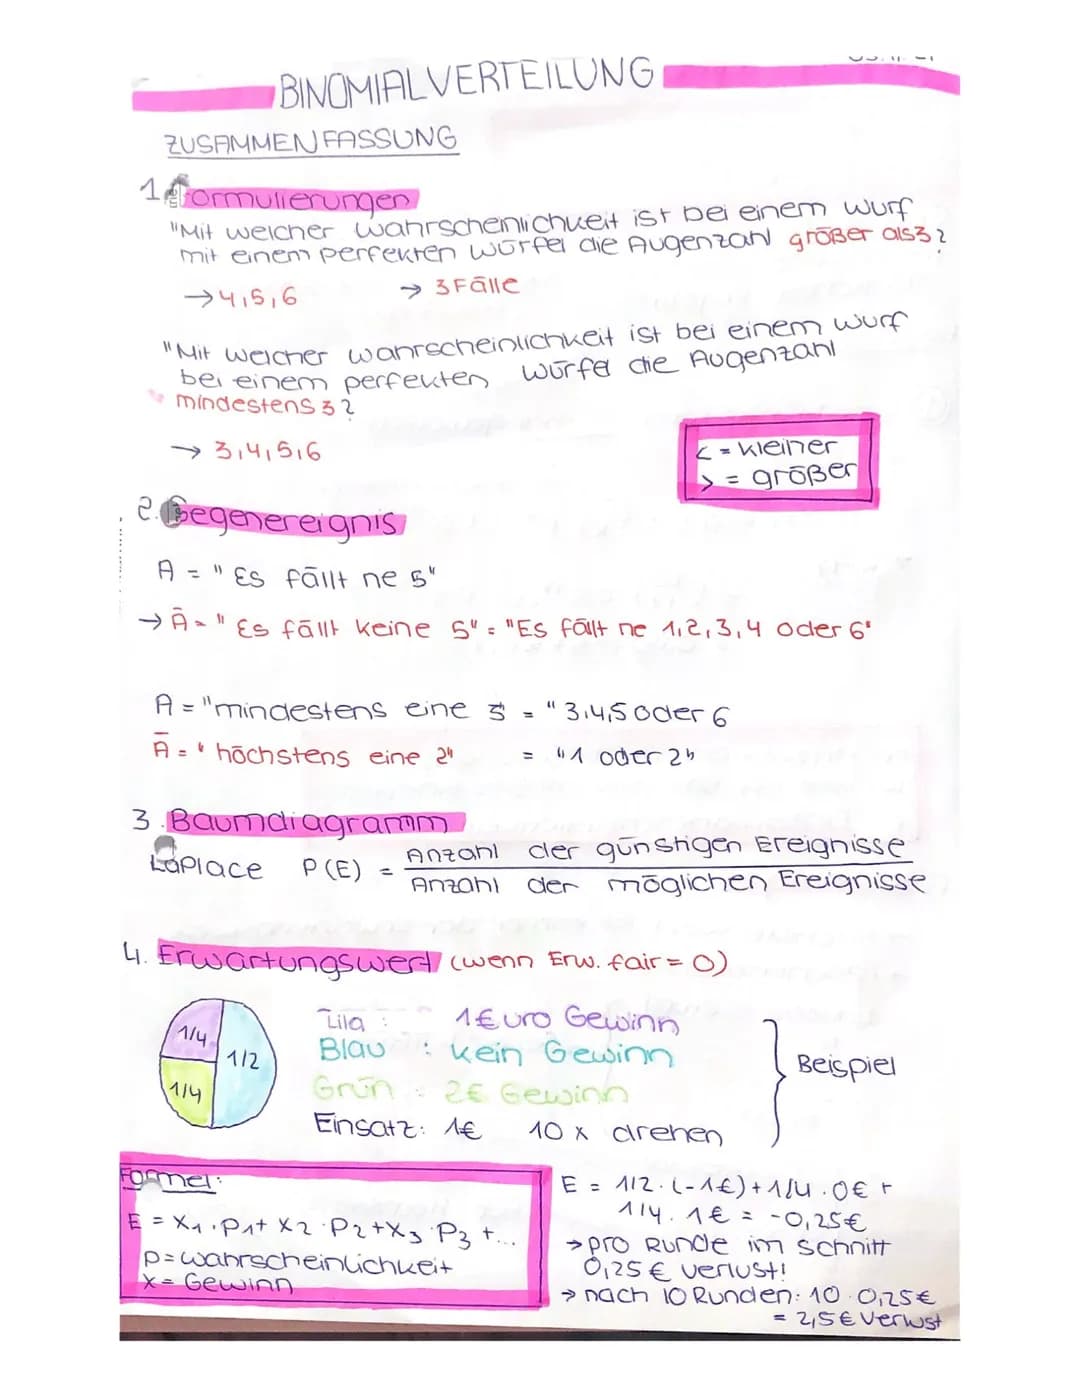 BINOMIALVERTEILUNG
ZUSAMMENFASSUNG
1. Formulierungen
"Mit welcher Wahrscheinlichkeit ist bei einem Wurf
mit einem perfekten Würfel die Augenzahl größer als 3?
→ 4,5,6 → 3 Fälle
"Mit welcher Wahrscheinlichkeit ist bei einem Wurf
bei einem perfekten Würfel die Augenzahl
mindestens 3?
→ 3,4,5,6
< = kleiner
> = größer
2. Gegenereignis
A = "Es fällt ne 5"
→ Ā = "Es fällt keine 5" = "Es fällt ne 1,2,3,4 oder 6"
A = "mindestens eine 3 = "3,4,5 oder 6
Ā = "höchstens eine 2" = "1 oder 2"
3. Baumdiagramm
LaPlace P(E) = Anzahl der günstigen Ereignisse
Anzahl der möglichen Ereignisse
4. Erwartungswert (wenn Erw. fair = 0)
1/4
1/2
1/4
Lila : 1 Euro Gewinn
Blau : kein Gewinn
Grün : 2€ Gewinn
Einsatz: 1€ 10 x drehen
Beispiel
Formel:
E = X1 · P1 + X2 · P2 + X3 · P3 + ...
P = Wahrscheinlichkeit
X = Gewinn
E = 1/2 · (-1€) + 1/4 · 0€ +
1/4 · 1€ = -0,25€
→ pro Runde im schnitt
0,25 € verlust!
→ nach 10 Runden: 10 · 0,25€
= 2,5€ Verlust